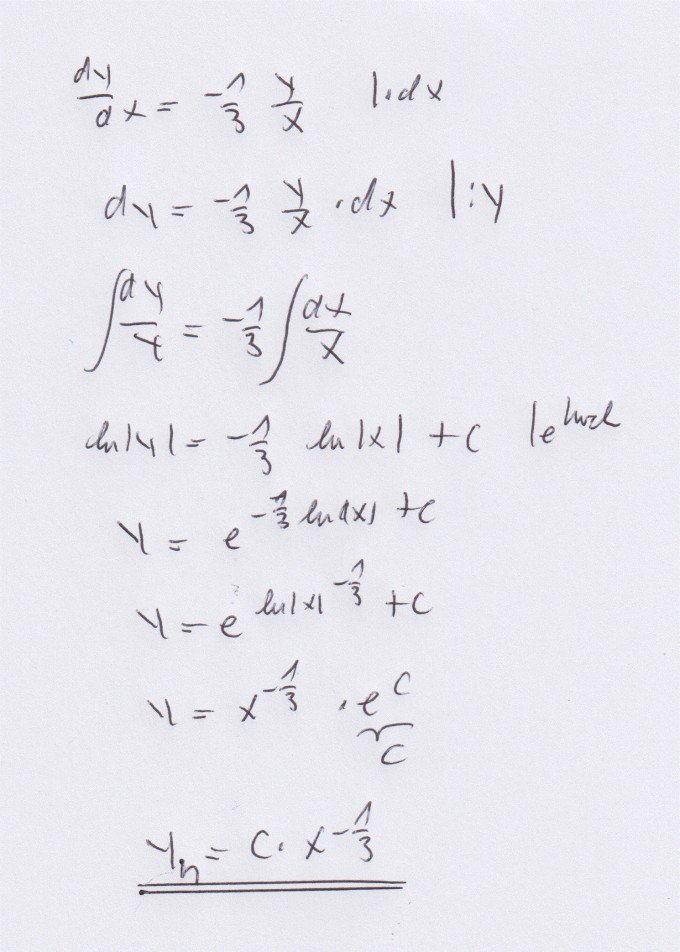 dy/dx = -1/3 y/x |·dx
dy = -1/3 y/x ·dx |:y
∫dy/y = -1/3 ∫dx/x
ln|y| = -1/3 ln|x| +C |e^hoch
y = e^(-1/3 ln|x| +C)
y = e^(ln|x|^(-1/3) +C)
y = x^(-1/3) ·e^C
C
y_h = C· x^(-1/3)